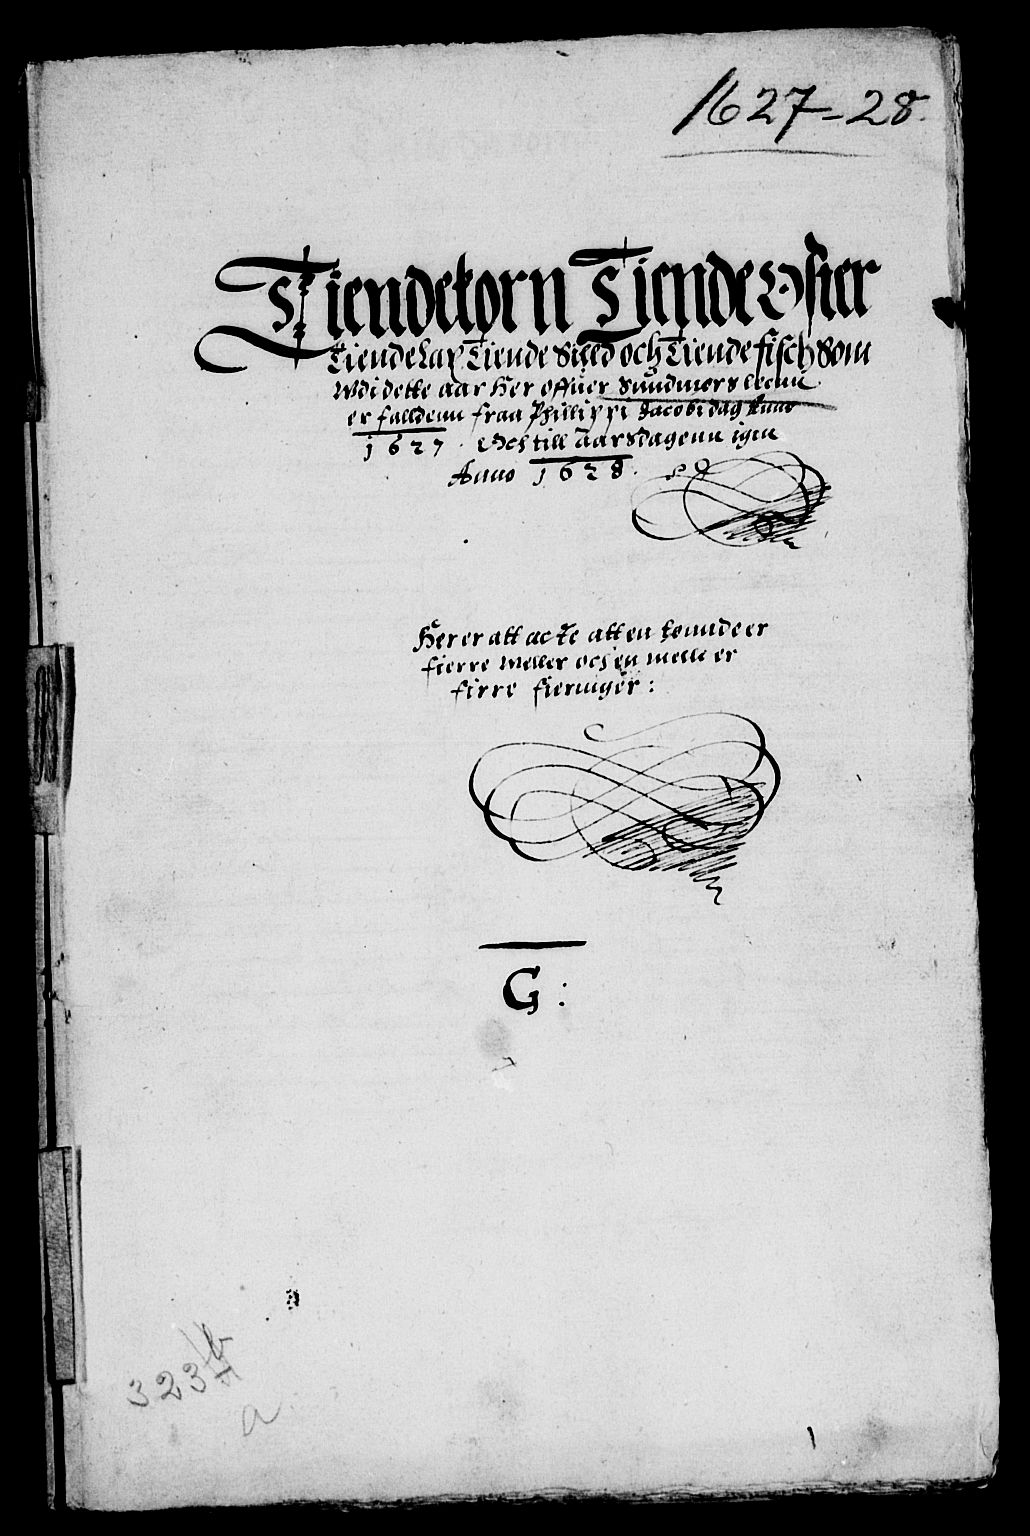 1627-28.
Tiendekorn Tiende Oster
Tiende Lax Tiende Silld och Tiende fisch Som
Wdi dette aar Her offuer Sundmørs leenn
er falldenn fraa Phillippi Jacobi dag Anno
1627. Och till aarsdagenn igen
Anno 1628.
Her er att acte att en tønnde er
fierre Meller och en melle er
firre fieringer:
G:
323
a